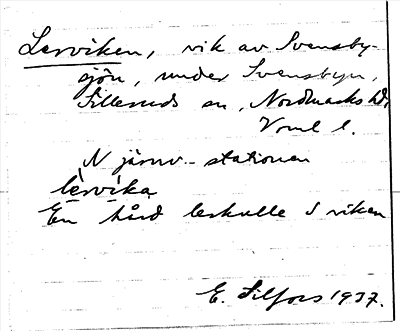 Lerviken, vik av Svensby-
sjön, under Svensbyn,
Silleruds sn, Nordmarks hd,
Vrml l.
N järnv.-stationen
lèrvika
En hård lerkulle S viken
E. Silfors 1937.